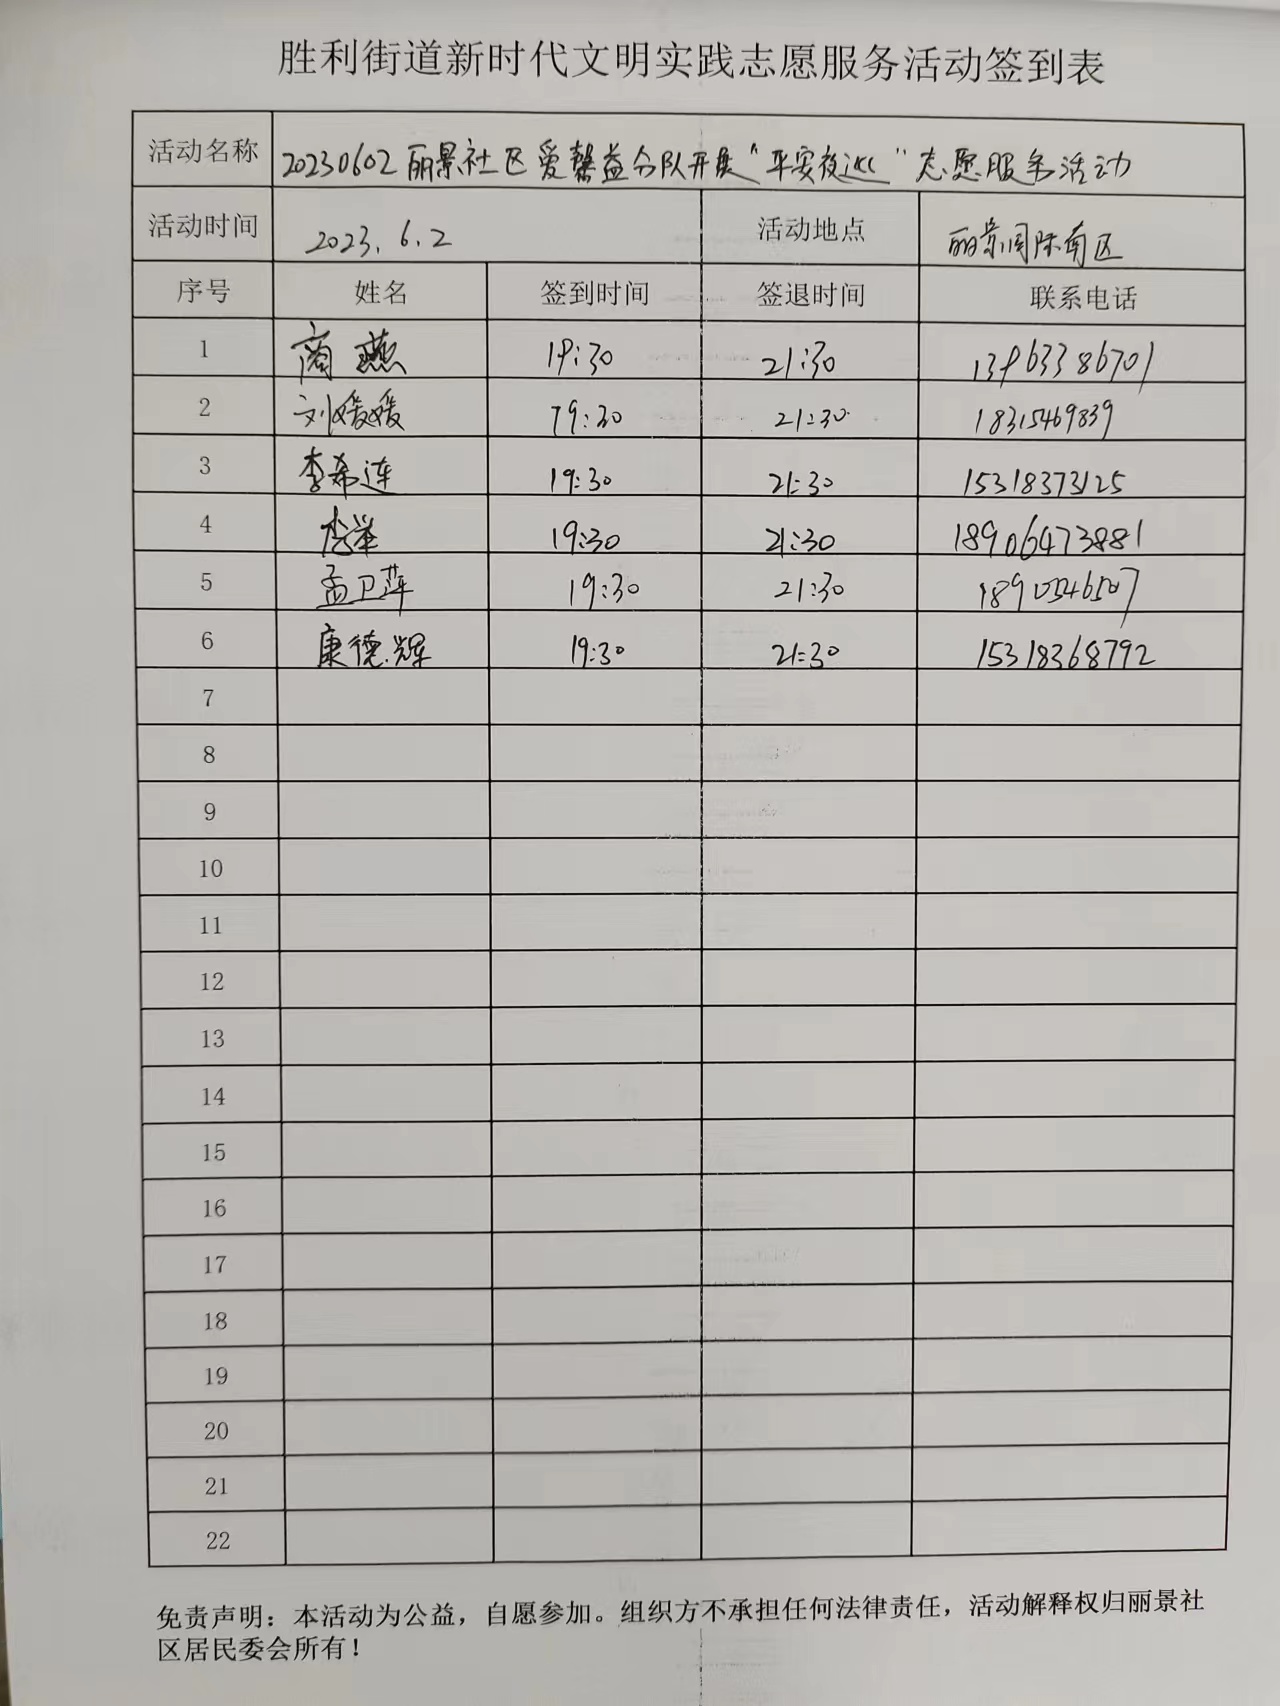 胜利街道新时代文明实践志愿服务活动签到表
活动名称 20230602丽景社区爱馨益分队开展“平安夜巡”志愿服务活动
活动时间 2023.6.2 活动地点 丽景阁陈南区
序号 姓名 签到时间 签退时间 联系电话
1 商燕 19:30 21:30 13963386701
2 刘媛媛 19:30 21:30 18315469839
3 李希连 19:30 21:30 15318373125
4 19:30 21:30 18906473881
5 孟卫萍 19:30 21:30 18905546507
6 康德辉 19:30 21:30 15318368792
7
8
9
10
11
12
13
14
15
16
17
18
19
20
21
22
免责声明：本活动为公益，自愿参加。组织方不承担任何法律责任，活动解释权归丽景社
区居民委会所有！